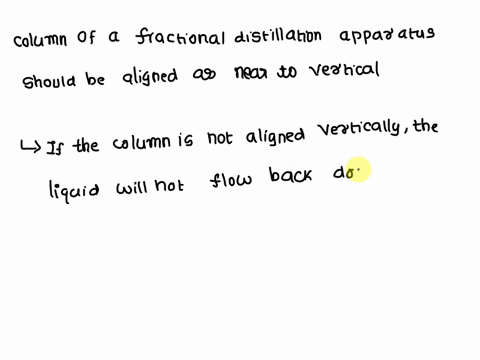 column of a fractional distillation apparatus
should be aligned as near to vertical
↳ If the column is not aligned vertically, the
liquid will not flow back do